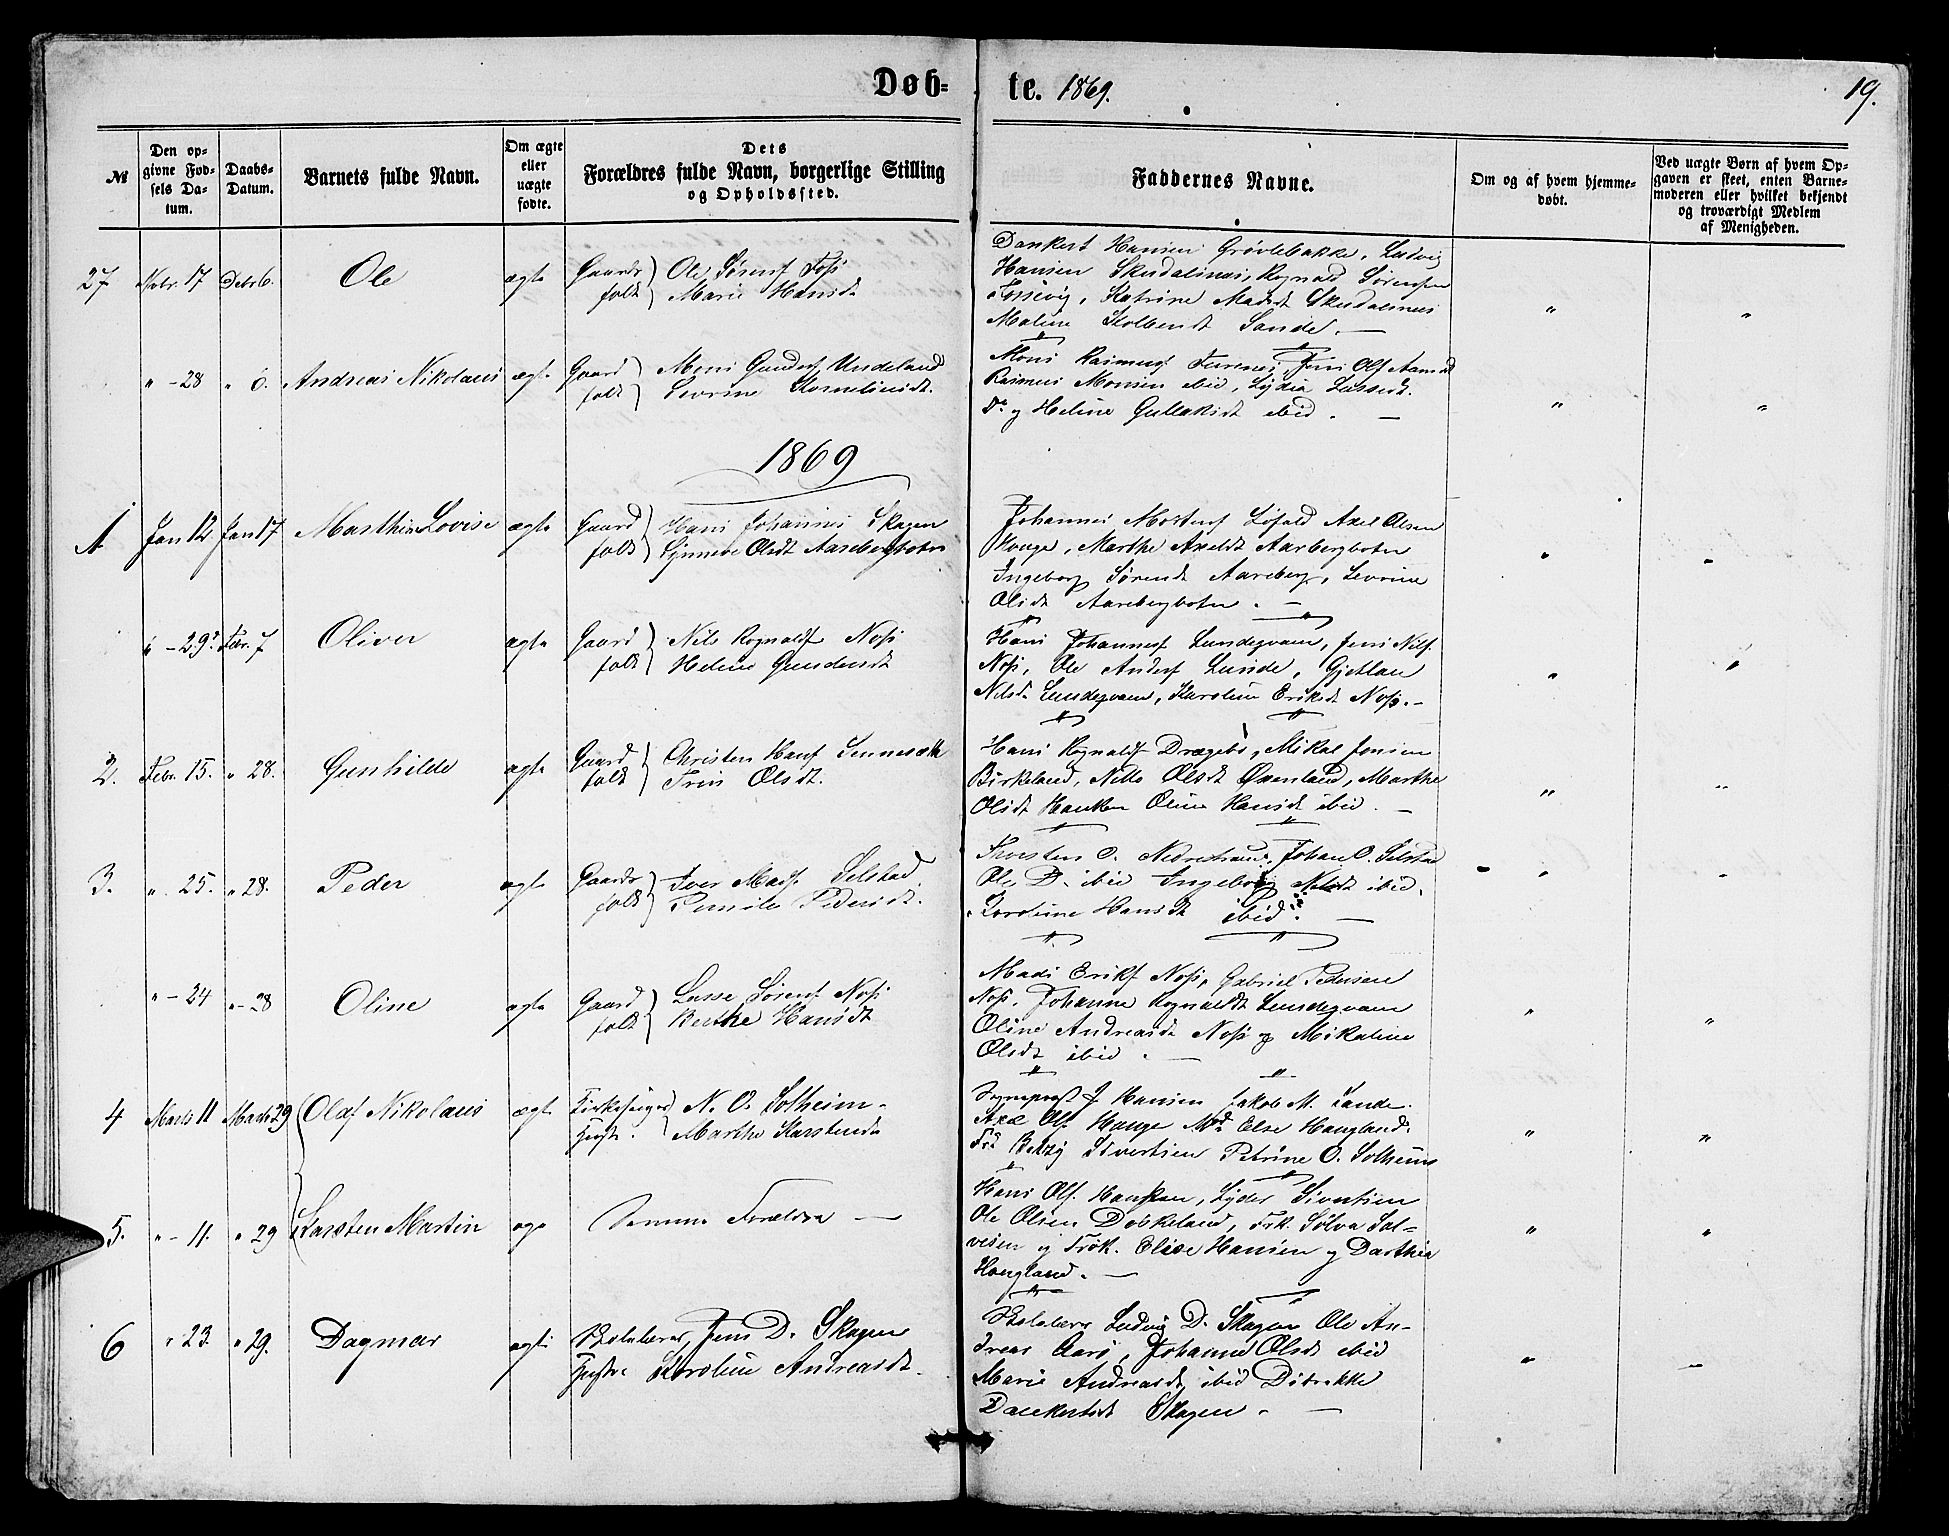 Døb-
te. 1869.
19.
№
Den op-
givne Fød-
sels Da-
tum.
Daabs-
Datum.
Barnets fulde Navn.
Om ægte
eller
uægte
fødte.
Dets
Forældres fulde Navn, borgerlige Stilling
og Opholdssted.
Faddernes Navne.
Om og af hvem hjemme-
døbt.
Ved uægte Børn af hvem Op-
gaven er skeet, enten Barne-
moderen eller hvilket bekjendt
og troværdigt Medlem
af Menigheden.
27 Novbr. 17 Decbr 6. Ole ægte Gaards folk Ole Sørens.
Marie Hansdt
Dankert Hansen Grövlebakke, Ludvig
Hansen Skudalsnes, Rognald Sørensen
Katrine Madsdt Skudalsnes
Maline Sande. —
" - 28 " 6. Andreas Nikolaus ægte Gaard folk Mons Undeland
Severine Korneliusdt.
Mons Rasmus. Furenes, Jens Ols.
Rasmus Monsen ibid, Lydia Lassedt.
Do og Heline Gullaksdt ibid. —
1869
1 Jan 12 Jan 17 Marthin Lovise ægte Gaard folk Hans Johannes Skagen
Synneve Olsdt Aarebergbotn
Johannes Løfald Axel Olsen
Houge, Marthe Axeldt Aarbergboten
Ingeborg Sørendt Aareberg, Severine
Olsdt Aarebergboten. —
" - 29 Febr. 7 Oliver ægte Gaard folk Nils Rognalds. Noss
Heline Gundersdt
Hans Johannes. Lundegvam, Jens Nils.
Noss, Ole Anders. Lunde, Gjetlau
Nilsdt Lundegvam, Karoline Eriksdt Noss. -
2. Febr. 15. " 28. Gunhilde ægte Gaard folk Christen Hans.
Trin Olsdt.
Hans Rognalds. Drægebø, Mikal Jensen
Birkeland, Nille Olsdt Øxenland, Marthe
Olsdt Hauken Oline Hansdt ibid. —
3. " 25. " 28. Peder ægte Gaards folk Iver Mads. Selstad
Pernile Pedersdt.
Thorsten O. Johan O. Selstad
Ole D. ibid Ingeborg Nilsdt ibid.
Karoline Hansdt ibid. —
" - 24 " - 28 Oline ægte Gaard folk Lasse Sørens. Noss
Berthe Hansdt
Mads Eriks. Noss, Gabriel Pedersen
Noss. Johanne Rognaldt Lundegvam
Oline Andreasdt Noss og Mikaline
Olsdt ibid. —
4 Marts 11 Marts 29 Olaf Nikolaus ægte Kirkesanger N. O. Solheim.
Hustr. Marthe Karstensdt
J Hansen Jakob M. Sande.
Axel Ols. Houge Md. Else Hougland.
Frk Betzy Sivertsen Petrine O. Solheims
5. " - 11. " 29 Karsten Martin ægte Samme Forældre —
Hans Ols. Hauken, Lyder Sivertsen
Ole Olsen Døskeland, Frk. Sølva Sal-
vesen og Frøk. Elise Hansen og Darthea
Hougland. —
6 " 23 " 29. Dagmar ægte Skolelærer, Jens D. Skagen
Hustr. Karoline Andreasdt.
Skolelærer Ludvig D. Skagen Ole An-
dreas Aarø, Johanne Olsdt ibid
Marie Andreasdt ibid Didrikke
Danckertsdt Skagen. —